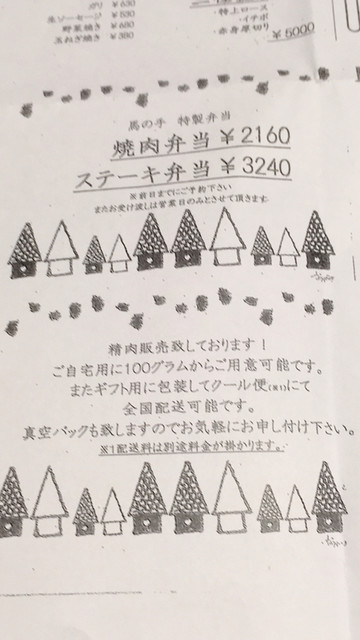 ガリ ￥630
生ソーセージ ￥530
野菜焼き ￥680
玉ねぎ焼き ￥380
・特上ロース
・イチボ
・赤身厚切り
￥5000
馬の手 特製弁当
焼肉弁当￥2160
ステーキ弁当￥3240
※前日までにご予約下さい
またお受け渡しは営業日のみとさせて頂きます。
精肉販売致しております！
ご自宅用に100グラムからご用意可能です。
またギフト用に包装してクール便(※1)にて
全国配送可能です。
真空パックも致しますのでお気軽にお申し付け下さい。
※1配送料は別途料金が掛かります。